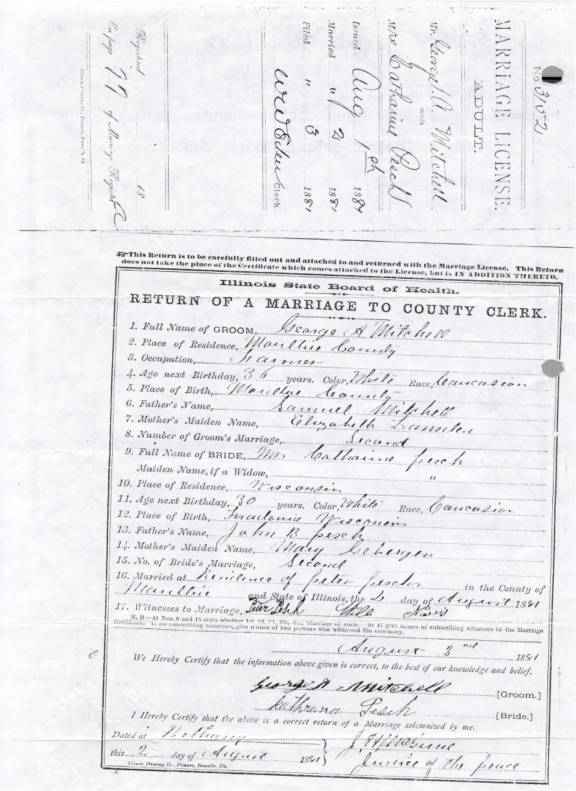 No. 3102
MARRIAGE LICENSE.
ADULT.
Mr. George A Mitchell
with
Mrs Catharine Pesch
Issued Aug 1st 1881
Married " 2 1881
Filed " 3 1881
Clerk.
Registered 18
On page 77 of Marriage Register
This Return is to be carefully filled out and attached to and returned with the Marriage License. This Return
does not take the place of the Certificate which comes attached to the License, but is IN ADDITION THERETO.
Illinois State Board of Health.
RETURN OF A MARRIAGE TO COUNTY CLERK.
1. Full Name of GROOM, George A Mitchell
2. Place of Residence, Moultrie County
3. Occupation, Farmer
4. Age next Birthday, 36 years. Color, White Race, Caucasion
5. Place of Birth, Moultrie County
6. Father's Name, Samuel Mitchell
7. Mother's Maiden Name, Elizabeth
8. Number of Groom's Marriage, Second
9. Full Name of BRIDE, Mrs Catharine pesch
Maiden Name, if a Widow, "
10. Place of Residence, Wisconsin
11. Age next Birthday, 30 years. Color, White Race, Caucasion
12. Place of Birth, Wisconsin
13. Father's Name, John B pesch
14. Mother's Maiden Name, Mary
15. No. of Bride's Marriage, Second
16. Married at residence of peter pesch in the County of
Moultrie and State of Illinois, the 2 day of August 1881
17. Witnesses to Marriage, Peter Pesch
N. B.—At Nos. 8 and 15 state whether 1st, 2d, 3d, 4th, &c., Marriage of each. At 17 give names of subscribing witnesses to the Marriage
Certificate. If no subscribing witnesses, give names of two persons who witnessed the ceremony.
August 2nd 1881
We Hereby Certify that the information above given is correct, to the best of our knowledge and belief.
George A Mitchell [Groom.]
Pesch [Bride.]
I Hereby Certify that the above is a correct return of a Marriage solemnized by me.
Dated at Bethany
this 2 day of August 1881
Justice of the peace
Illinois Printing Co., Printers, Danville, Ills.